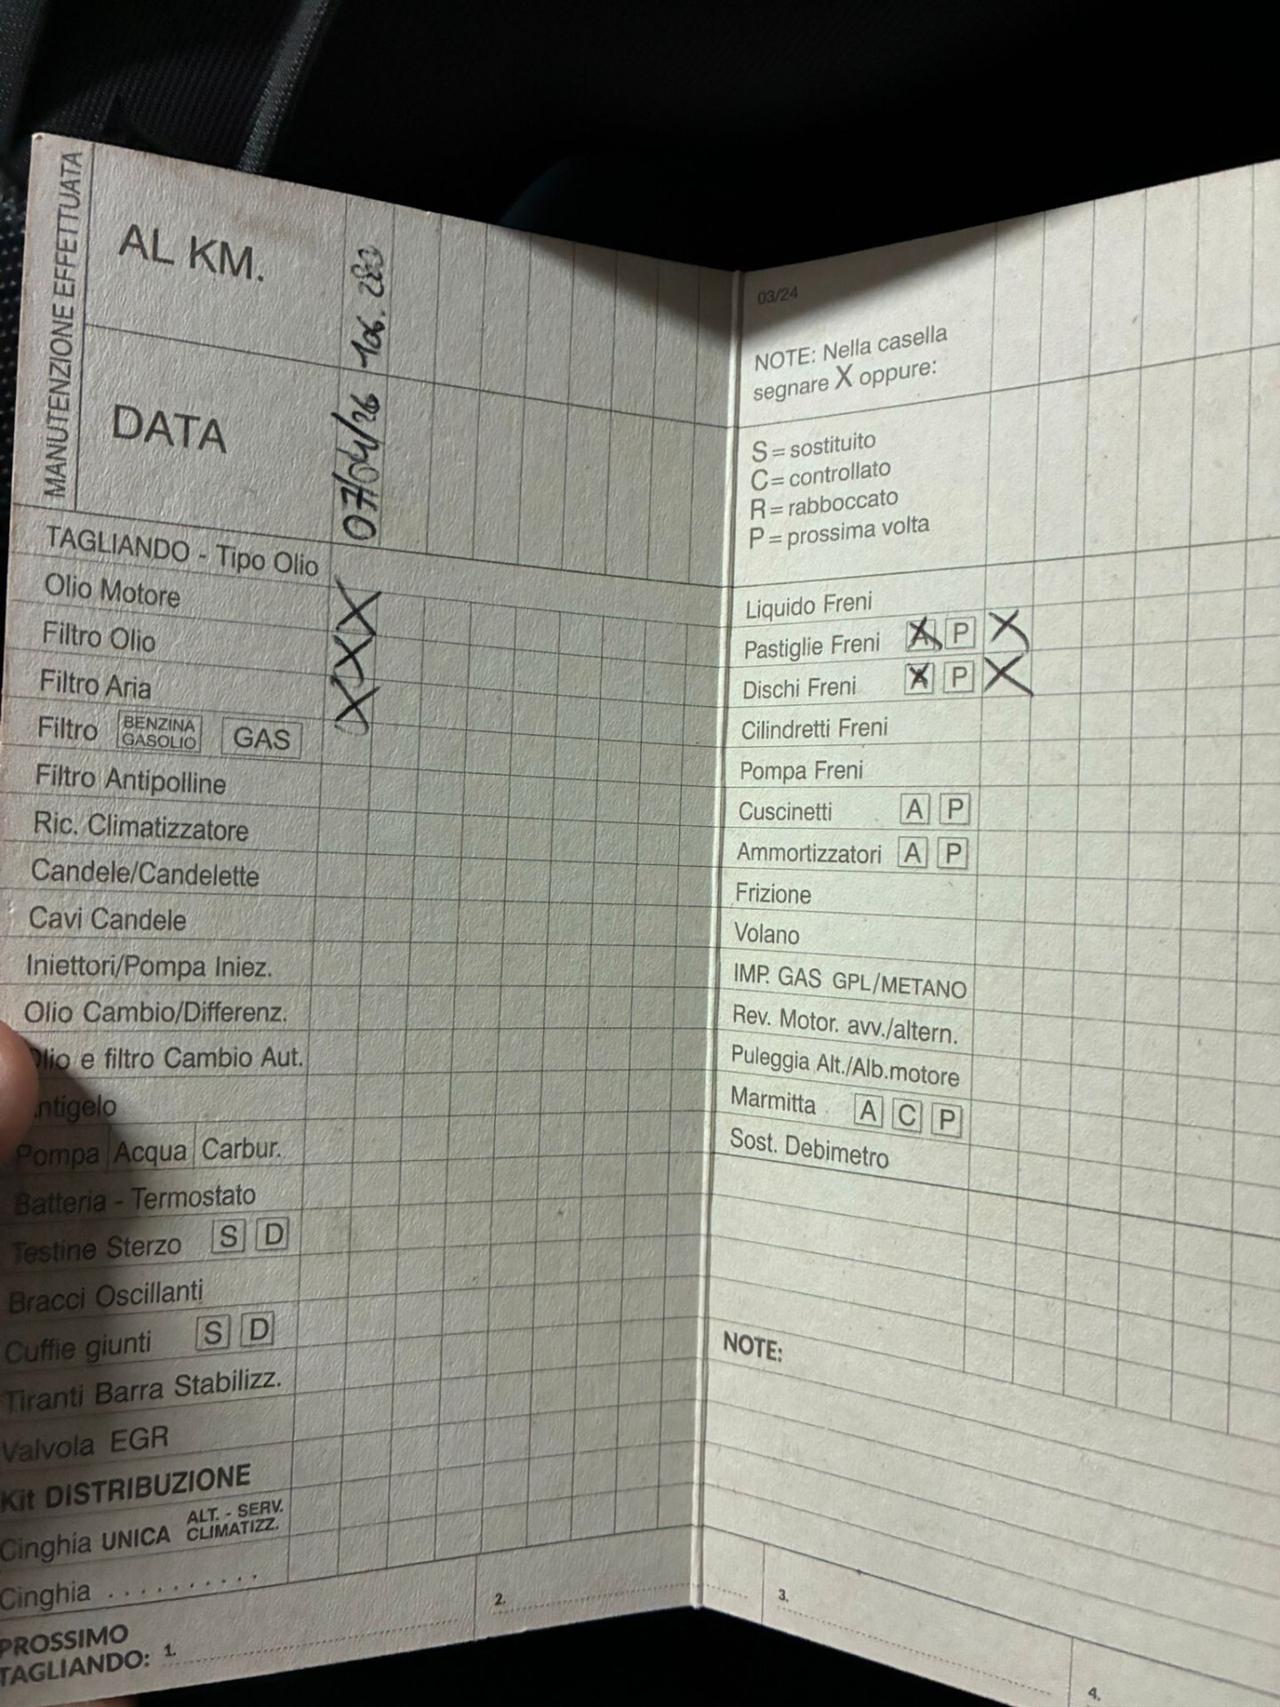 MANUTENZIONE EFFETTUATA
AL KM.
106.280
DATA
07/04/26
TAGLIANDO - Tipo Olio
Olio Motore X
Filtro Olio X
Filtro Aria X
Filtro BENZINA GASOLIO GAS
Filtro Antipolline
Ric. Climatizzatore
Candele/Candelette
Cavi Candele
Iniettori/Pompa Iniez.
Olio Cambio/Differenz.
Olio e filtro Cambio Aut.
ntigelo
Pompa Acqua Carbur.
Batteria - Termostato
Testine Sterzo S D
Bracci Oscillanti
Cuffie giunti S D
Tiranti Barra Stabilizz.
Valvola EGR
Kit DISTRIBUZIONE
Cinghia UNICA ALT. - SERV. CLIMATIZZ.
Cinghia ..........
PROSSIMO
TAGLIANDO: 1.
2.
03/24
NOTE: Nella casella
segnare X oppure:
S = sostituito
C = controllato
R = rabboccato
P = prossima volta
Liquido Freni
Pastiglie Freni A P X
Dischi Freni A P X
Cilindretti Freni
Pompa Freni
Cuscinetti A P
Ammortizzatori A P
Frizione
Volano
IMP. GAS GPL/METANO
Rev. Motor. avv./altern.
Puleggia Alt./Alb.motore
Marmitta A C P
Sost. Debimetro
NOTE:
3.
4.